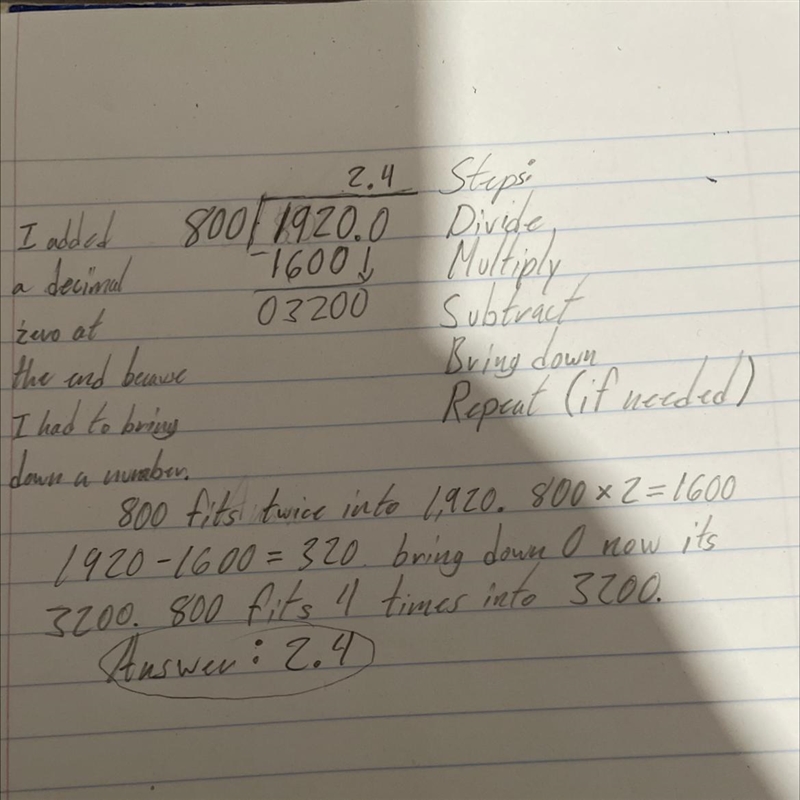 2.4
800 1920.0
-1600↓
03200
I added
a decimal
zero at
the end because
I had to bring
down a number.
Steps:
Divide,
Multiply
Subtract
Bring down
Repeat (if needed)
800 fits twice into 1,920. 800 × 2 = 1600
1920 - 1600 = 320. bring down 0 now its
3200. 800 fits 4 times into 3200.
Answer: 2.4